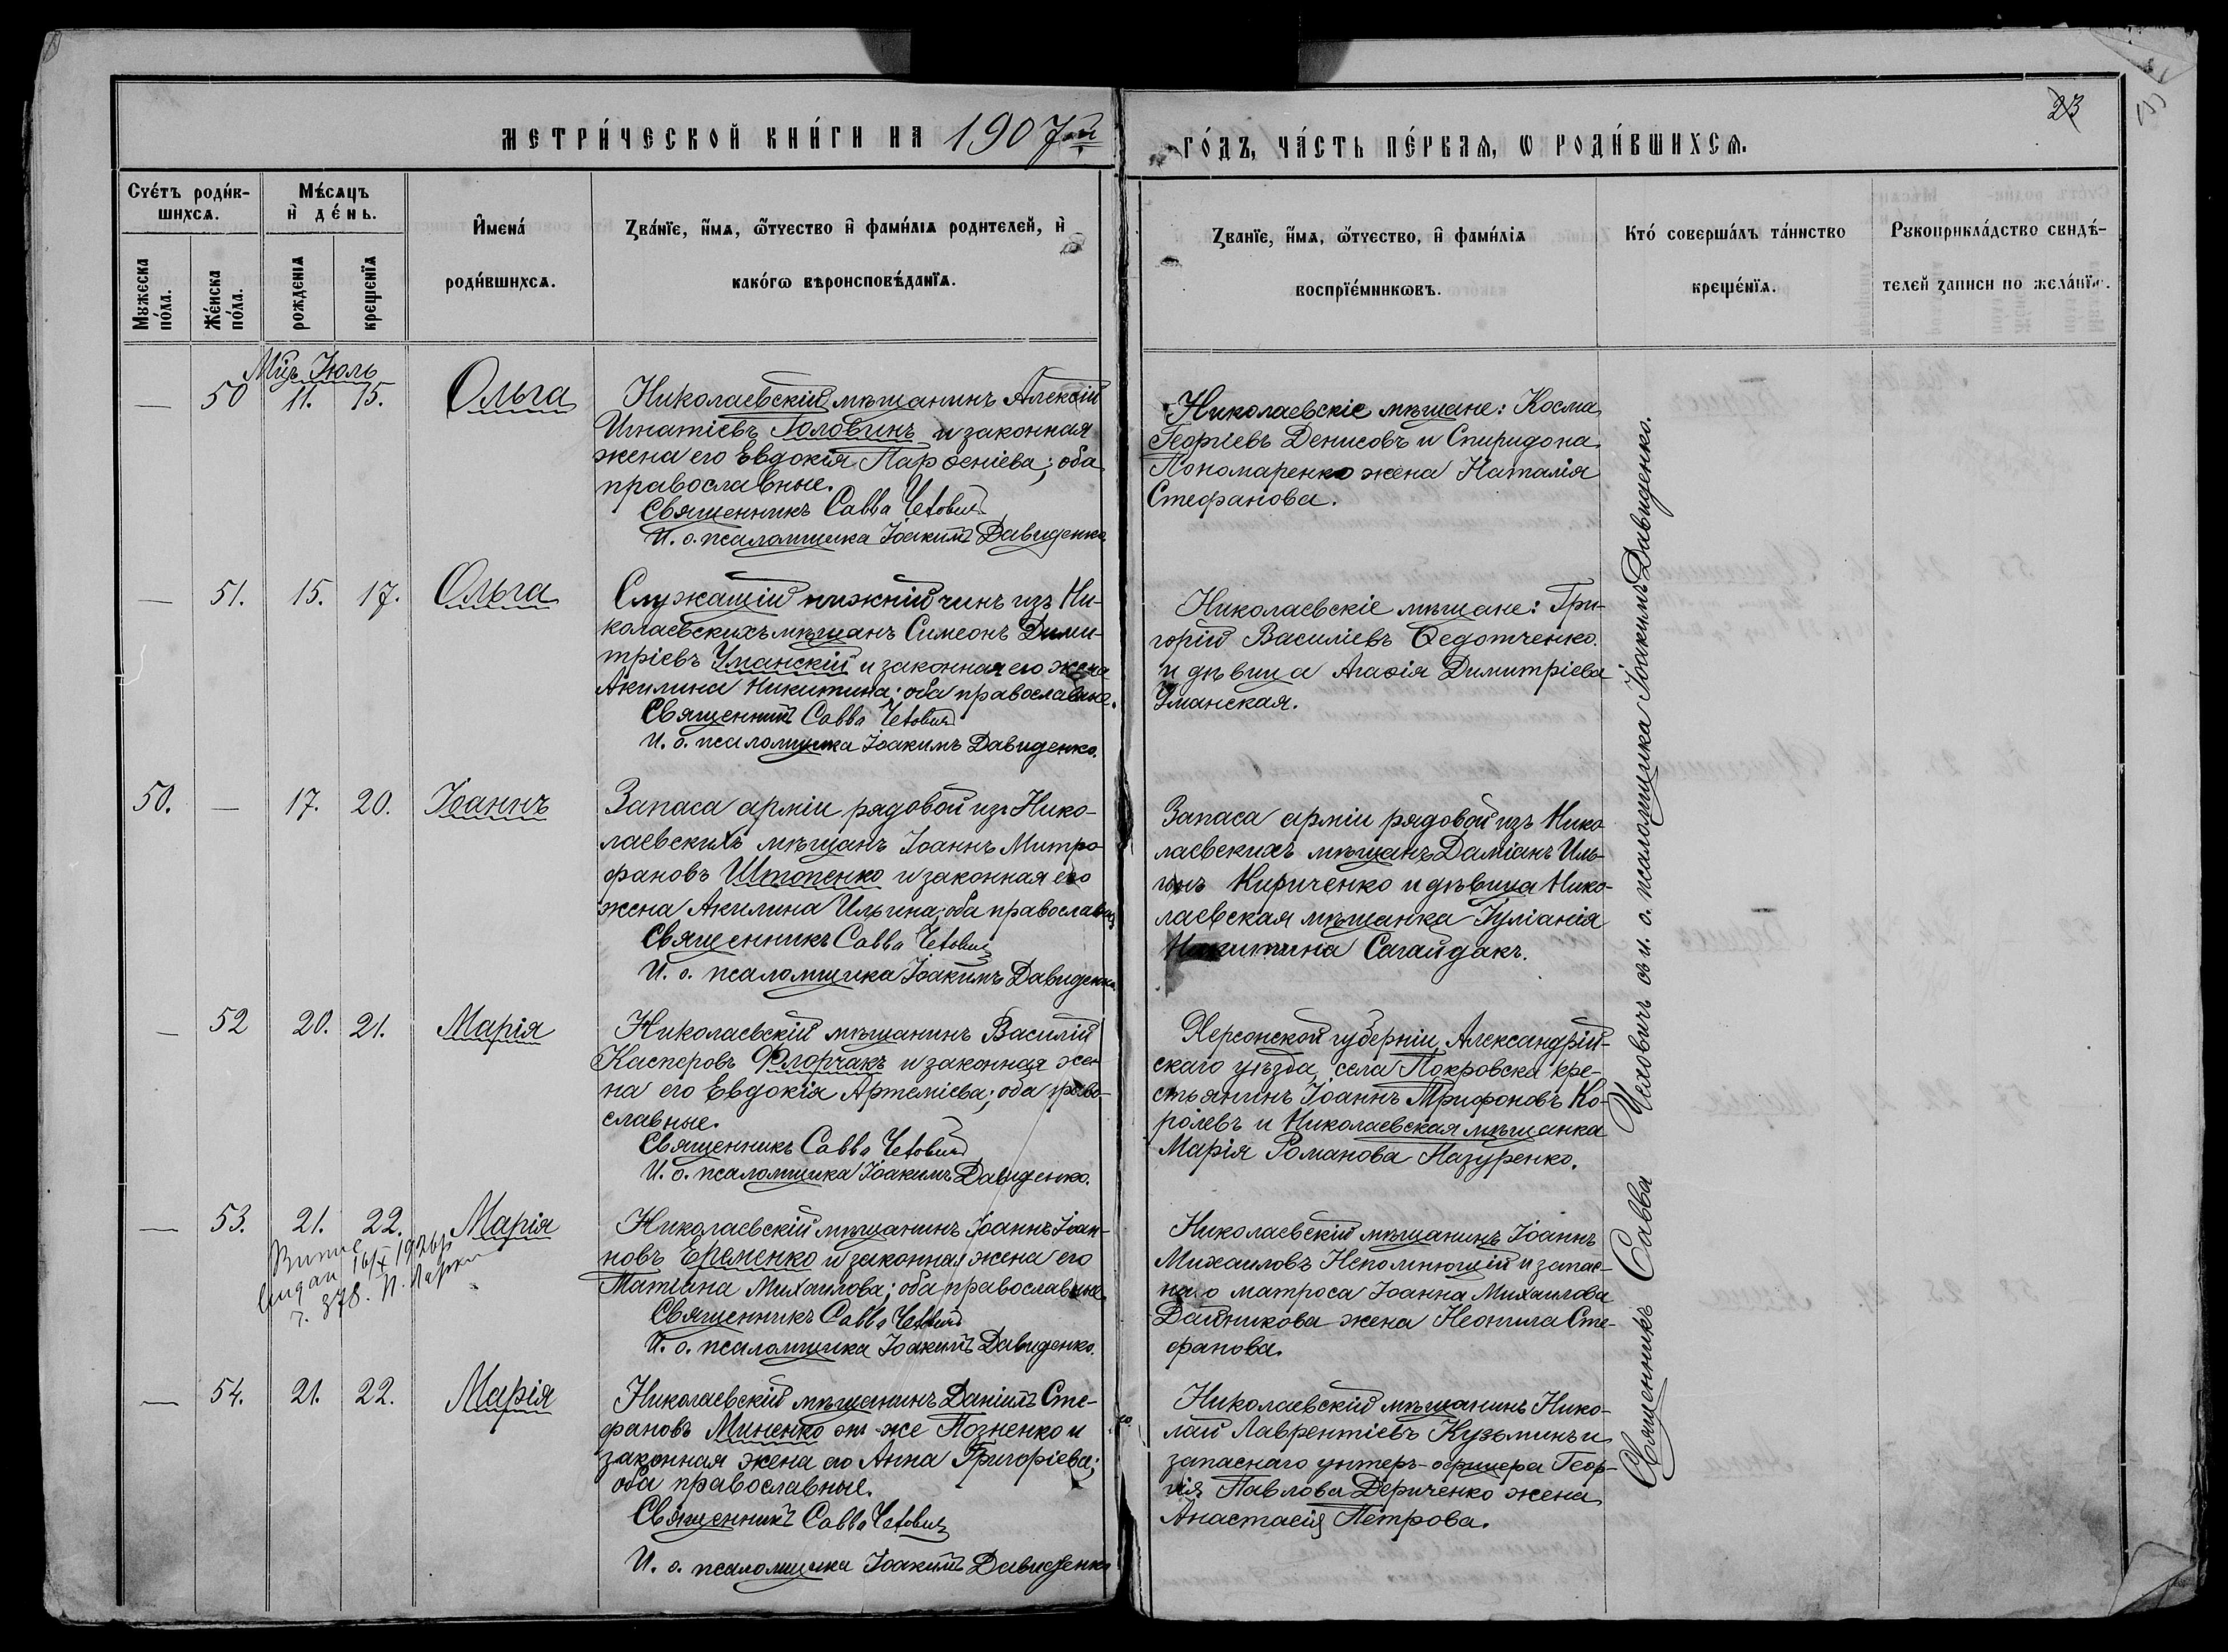 МЕТРИ́ЧЕСКОЙ КНИ́ГИ НА 1907й
ГО́ДЪ, ЧА́СТЬ ПЕ́РВАѦ, Ѡ РОДИ́ВШИХСѦ.
23
Сче́тъ роди́в-
шихсѧ.
Мѣ́сѧцъ
и҆ де́нь.
Мꙋжеска
по́ла.
Же́нска
по́ла.
рожденїѧ
крещенїѧ
И҆мена́
роди́вшихсѧ.
Зва́нїе, и҆́мѧ, ѻ҆́тчество и҆ фами́лїѧ родителей, и҆
како́гѡ вѣроисповѣ́данїѧ.
Званїе, и҆́мѧ, ѻ҆́тчество, и҆ фами́лїѧ
воспрїе́мникѡвъ.
Кто́ соверша́лъ та́инство
креще́нїѧ.
Рꙋкоприкла́дство свидѣ́-
телей записи по жела́нїю.
Мцъ Іюль
— 50 11. 15. Ольга
Николаевскій мѣщанинъ Алексій
Игнатіевъ Головинъ и законная
жена его Евдокія Парѳеніева; оба
православные.
Священникъ Савва Чеховичъ
И. о. псаломщика Іоакимъ Давиденко
Николаевскіе мѣщане: Косма
Георгіевъ Денисовъ и Спиридона
Пономаренко жена Наталія
Стефанова.
— 51. 15. 17. Ольга
Служащій нижній чинъ изъ Ни-
колаевскихъ мѣщанъ Симеонъ Дими-
тріевъ Уманскій и законная его жена
Акилина Никитина; оба православные.
Священникъ Савва Чеховичъ
И. о. псаломщика Іоакимъ Давиденко.
Николаевскіе мѣщане: Гри-
горій Василіевъ Ѳедотченко
и дѣвица Агафія Димитріева
Уманская.
50. — 17. 20. Іоаннъ
Запаса арміи рядовой изъ Нико-
лаевскихъ мѣщанъ Іоаннъ Митро-
фановъ Штопенко и законная его
жена Акилина Ильина; оба православные
Священникъ Савва Чеховичъ
И. о. псаломщика Іоакимъ Давиденко
Запаса арміи рядовой изъ Нико
лаевскихъ мѣщанъ Даміанъ Иль-
инъ Кириченко и дѣвица Нико-
лаевская мѣщанка Іуліанія
Никитина Сагайдакъ.
— 52 20. 21. Марія
Николаевскій мѣщанинъ Василій
Касперовъ Флорчакъ и законная же-
на его Евдокія Артеміева; оба право-
славные.
Священникъ Савва Чеховичъ
И. о. псаломщика Іоакимъ Давиденко.
Херсонской губерніи, Александрій-
скаго уѣзда, села Покровска кре-
стьянинъ Іоаннъ Трифоновъ Ко-
ролевъ и Николаевская мѣщанка
Марія Романова Назуренко.
— 53. 21. 22. Марія
16/X 1926р
378.
Николаевскій мѣщанинъ Іоаннъ Іоан-
новъ Еременко и законная жена его
Татіана Михаилова; оба православные.
Священникъ Савва Чеховичъ
И. о. псаломщика Іоакимъ Давиденко.
Николаевскій мѣщанинъ Іоаннъ
Михаиловъ Непомнющій и запас-
наго матроса Іоанна Михаилова
Дайникова жена Неонила Сте-
фанова.
— 54. 21. 22. Марія
Николаевскій мѣщанинъ Даніилъ Сте-
фановъ Миненко онъ-же Позненко и
законная жена его Анна Григоріева;
оба православные.
Священникъ Савва Чеховичъ
И. о. псаломщика Іоакимъ Давиденко
Николаевскій мѣщанинъ Нико-
лай Лаврентіевъ Кузьминъ и
запаснаго унтеръ-офицера Геор-
гія Павлова Дериченко жена
Анастасія Петрова.
Священникъ Савва Чеховичъ съ и. о. псаломщика Іоакимъ Давиденко.